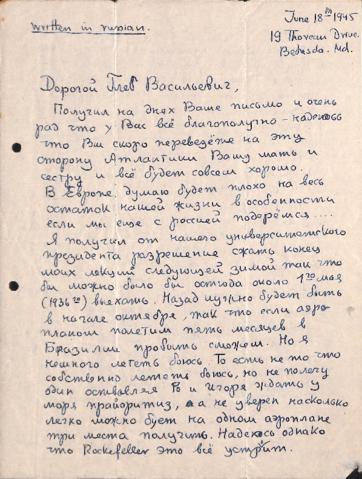 written in russian.
June 18th 1945
19 Thoreau Drive.
Bethesda. Md.
Дорогой Глеб Васильевич,
Получил на днях Ваше письмо и очень
рад что у Вас всё благополучно - надеюсь
что Вы скоро переведёте на эту
сторону Атлантики Вашу мать и
сестру и всё будет совсем хорошо.
В Европе, думаю будет плохо на весь
остаток нашей жизни в особенности
если мы еще с россией подерёмся....
Я получил от нашего университетского
президента разрешение сжать конец
моих лекций следующей зимой так что
бы можно было бы отсюда около 1го мая
(1936го) выехать. Назад нужно будет быть
в начале октября, так что если аэро-
планом полетим пять месяцев в
Бразилии пробыть сможем. Но я
немного летать боюсь. То есть не то что
собственно летать боюсь, но не хочу
один оставляя Ro и Игоря ждать у
моря, а не уверен насколько
легко можно будет на одном аэроплане
три места получить. Надеюсь однако
что Rockefeller это всё устроит.